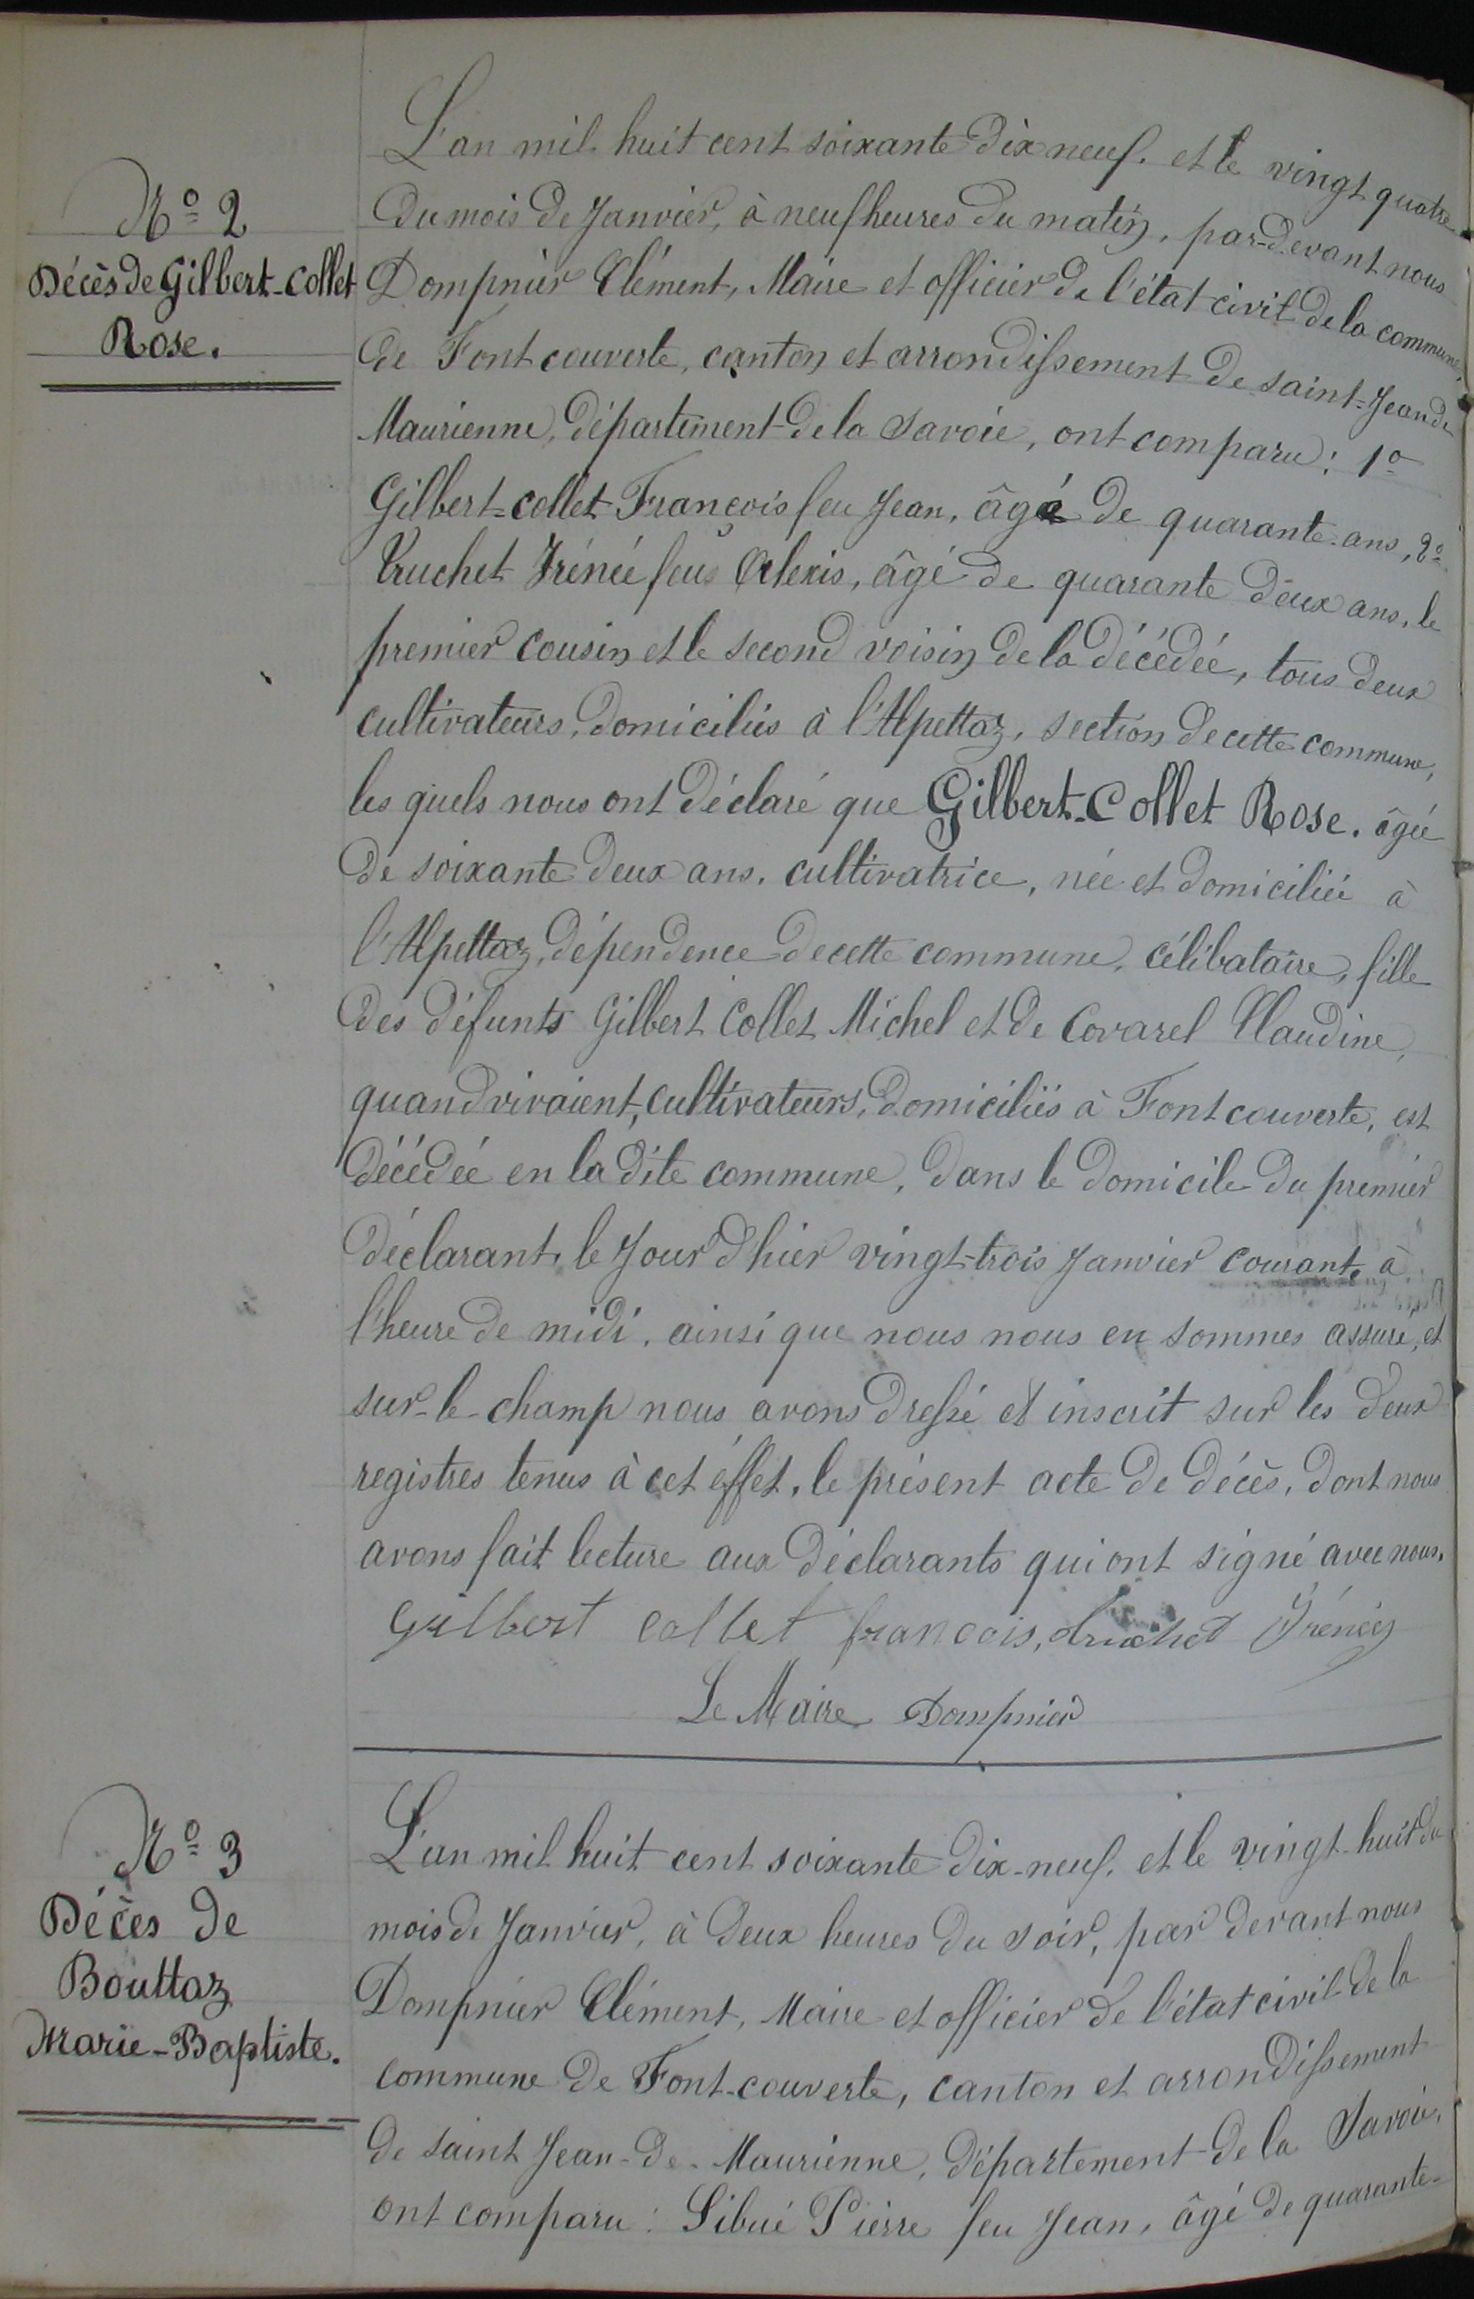 N° 2
Décès de Gilbert-Collet
Rose.
L'an mil huit cent soixante dix neuf. et le vingt quatre
du mois de Janvier, à neuf heures du matin, par-devant nous
Dompnier Clément, Maire et officier de l'état civil de la commune,
de Fontcouverte, canton et arrondissement de saint-Jean de
Maurienne, département de la Savoie, ont comparu: 1°
Gilbert-Collet François feu Jean, âgé de quarante ans, 2°
Truchet Irénée feu Alexis, âgé de quarante deux ans, le
premier cousin et le second voisin de la décédée, tous deux
cultivateurs, domiciliés à l'Alpettaz, section de cette commune,
les quels nous ont déclaré que Gilbert-Collet Rose. âgée
de soixante deux ans, cultivatrice, née et domiciliée à
l'Alpettaz, dépendence de cette commune, célibataire, fille
des défunts Gilbert Collet Michel et de Covarel Claudine,
quand vivaient, cultivateurs, domiciliés à Fontcouverte, est
décédée en la dite commune, dans le domicile du premier
déclarant, le Jour d'hier vingt-trois Janvier courant, à
l'heure de midi, ainsi que nous nous en sommes assuré, et
sur-le-champ nous avons dressé et inscrit sur les deux
registres tenus à cet éffet, le présent acte de décès, dont nous
avons fait lecture aux déclarants qui ont signé avec nous.
Gilbert collet francois, truchet Irénée
Le Maire Dompnier
N° 3
Décès de
Bouttaz
Marie-Baptiste.
L'an mil huit cent soixante dix-neuf, et le vingt-huit du
mois de Janvier, à deux heures du soir, par devant nous
Dompnier Clément, Maire et officier de l'état civil de la
commune de Font-couverte, canton et arrondissement
de saint Jean-de-Maurienne, département de la Savoie,
ont comparu: Sibué Pierre feu Jean, âgé de quarante-